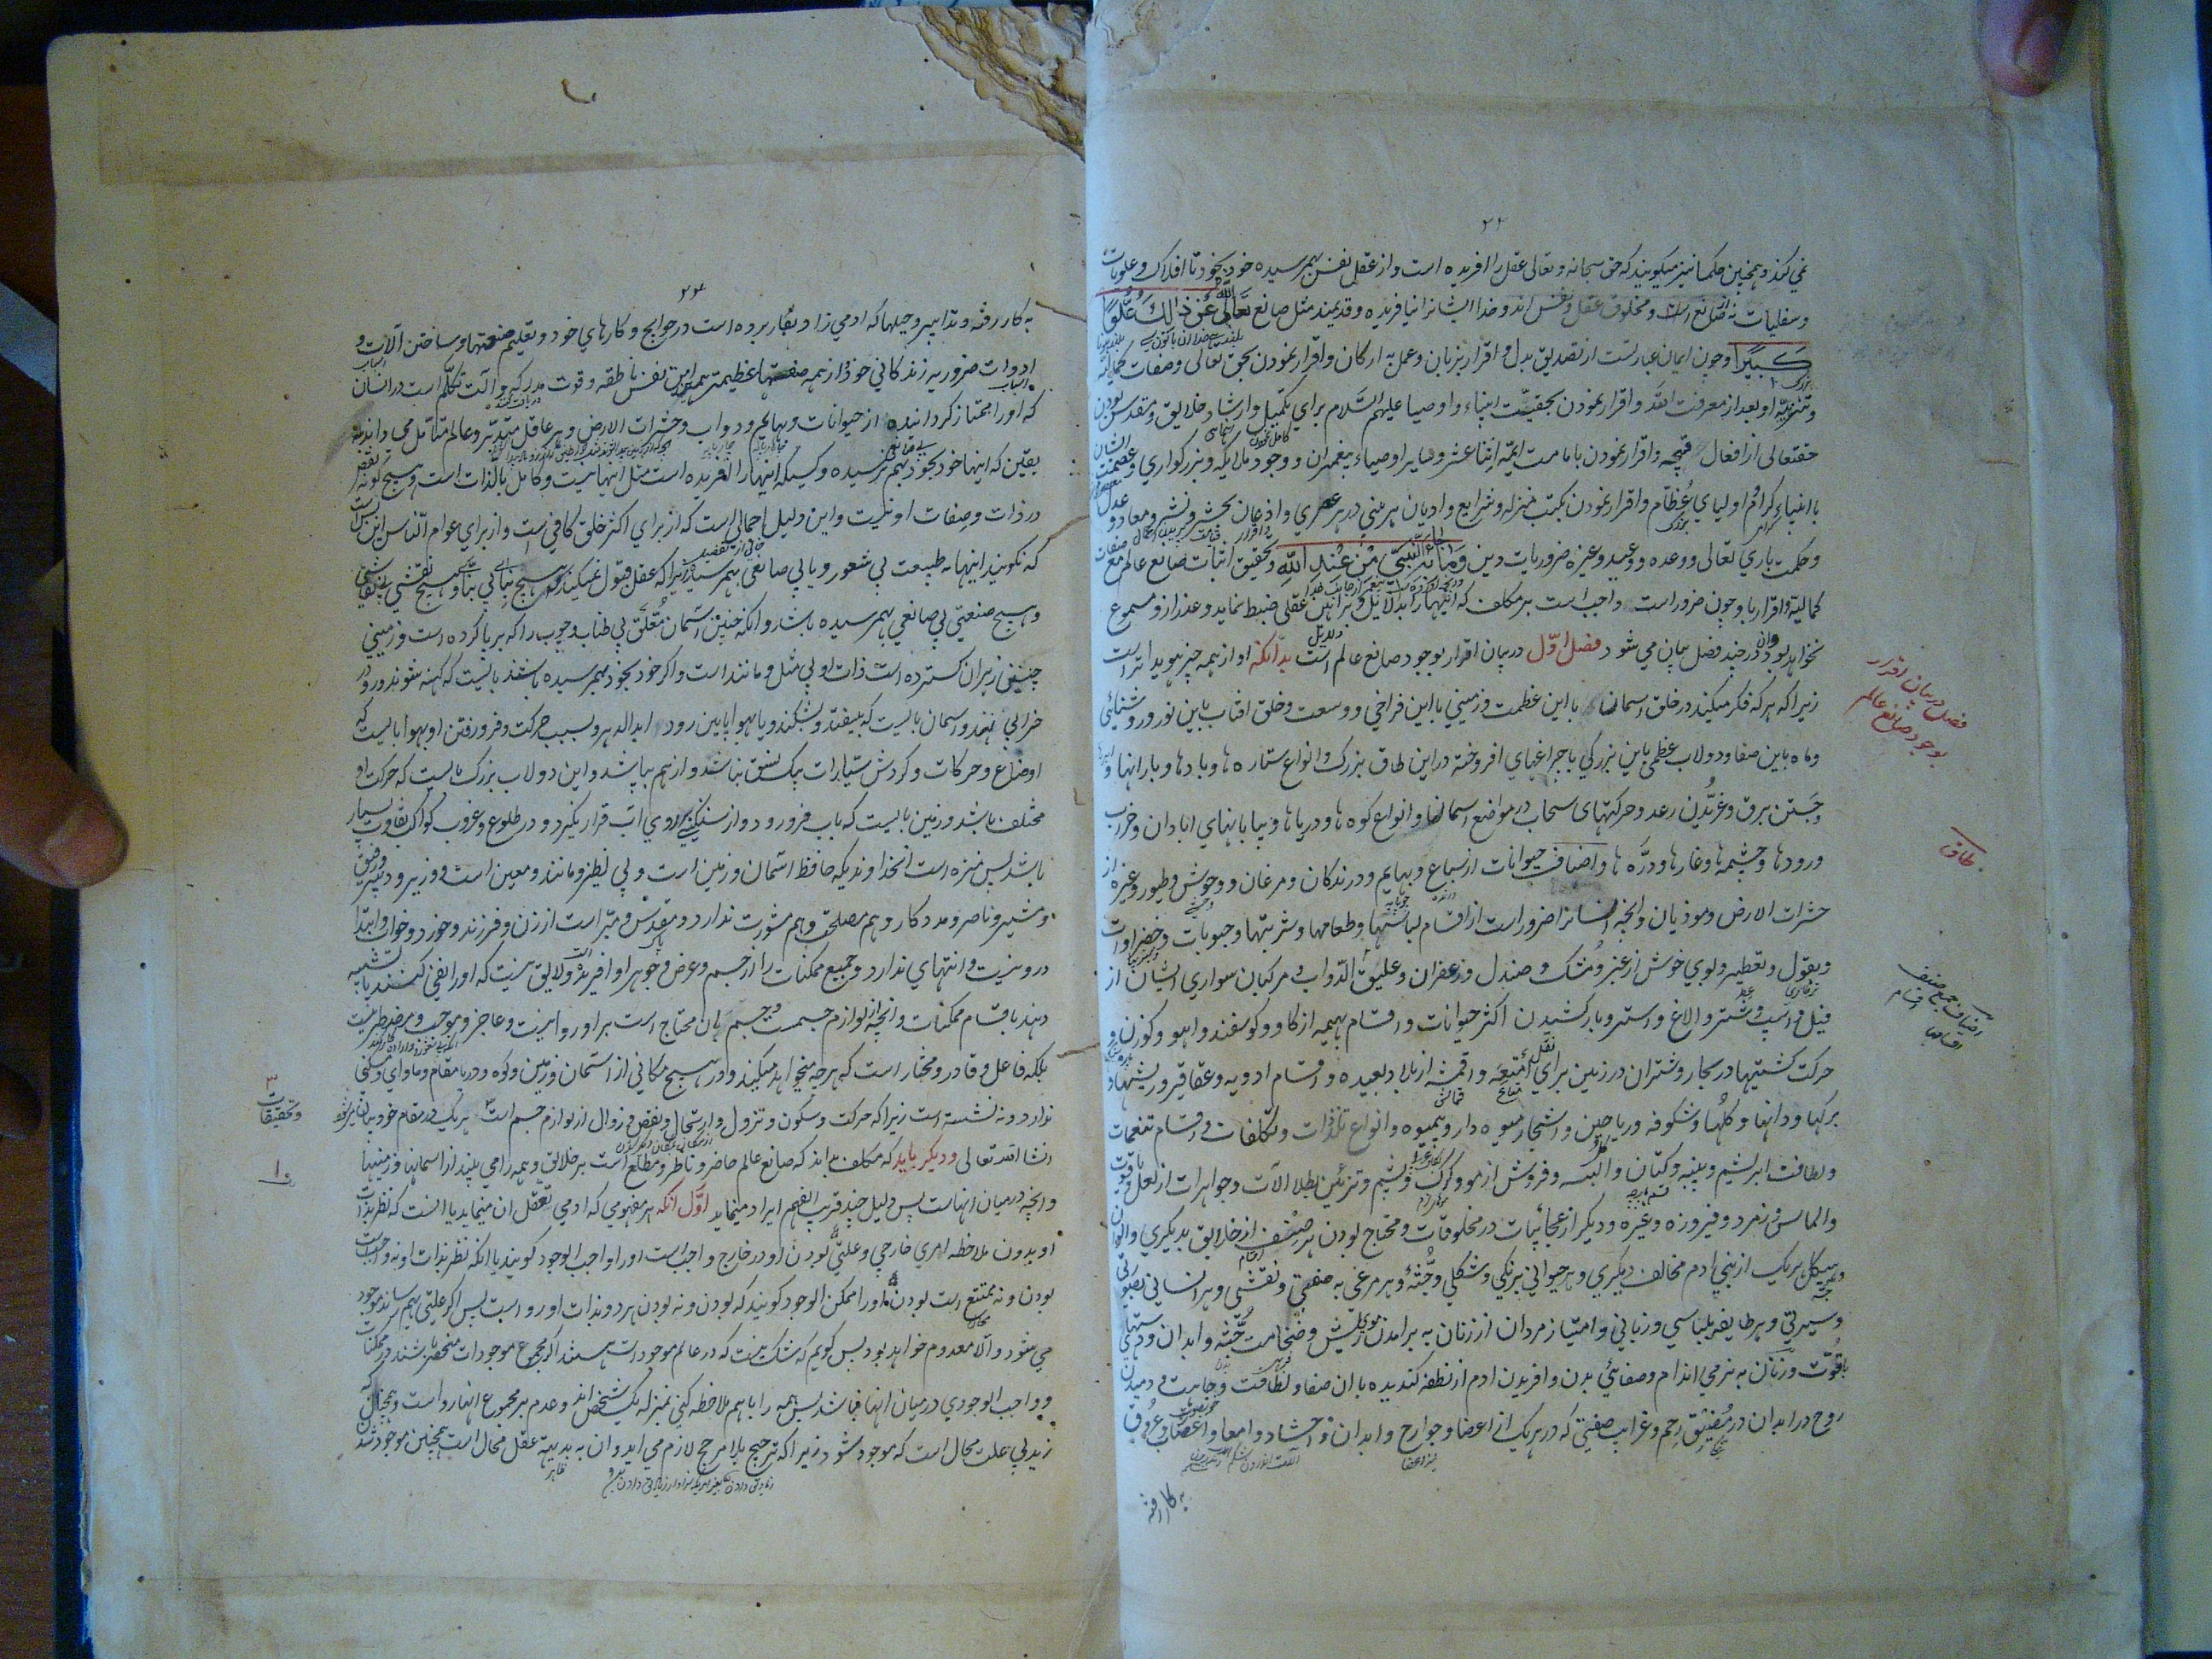 ۲۲
نمی کند و همچنین حکما نیز میگویند که حق سبحانه و تعالی عقل را افریده است و از عقل نفس بهمرسیده خود بخود تا افلاک و علویات
و سفلیات نه صانع است و مخلوق عقل و نفس اند و خدا ایشانرا نیافریده و قدیمند مثل صانع تَعَالَی اللهُ عَنْ ذٰالِکَ عُلُوًّا
کَبیٖرًا و چون ایمان عبارتست از تصدیق بدل و اقرار بزبان و عمل به ارکان و اقرار نمودن بحق تعالی و صفات کمالیه
و تنزیهیه او بعد از معرفت الله و اقرار نمودن بحقیّت انبیاء و اوصیا علیهم السّلام برای تکمیل و ارشاد خلایق و مقدس بودن
حقتعالی از افعال قبیحه و اقرار نمودن بامامت ائمّه اثنا عشر و سایر اوصیاء پیغمبران و وجود ملائکه و بزرگواری و عصمت ایشان
با انبیاء کرام و اولیای عُظّام و اقرار نمودن بکتب منزله و شرایع و ادیان هر نبیّ در هر عصری و اذعان بحشر و نشر و معاد و عدل
و حکمت باری تعالی و وعده و وعید و غیره ضروریات دین وَمَا جَاءَ النَّبیُّ مِنْ عِنْدِ اللّٰهِ و تحقیق اثبات صانع عالم مع صفات
کمالیه و اقرار با و چون ضرور است و واجب است بر مکلف که اینهارا بدلایل و براهین عقلی ضبط نماید و عذر از و مسموع
نخواهد بود و ان در چند فضل بیان می شود فصل اوّل در بیان اقرار بوجود صانع عالم است بدانکه او از همه چیز هویدا تر است
زیرا که هر که فکر میکند در خلق اسمان با این عظمت و زمینی با این فراخی و وسعت و خلق افتاب باین نور و روشنائی
و ماه باین صفا و دولاب عظمی باین بزرگی با چراغهای افروخته در این طاق بزرگ و انواع ستاره ها و بادها و بارانها و
جَستن برق و غرّیدن رعد و حرکتهای سحاب در مواضع اسمان و انواع کوه ها و دریاها و بیابانهای ابادان و خراب
و رودها و چشمه ها و غارها و درّه ها و اصناف حیوانات از سباع و بهایم و درندگان و مرغان و وحوش و طیور و غیره از
حشرات الارض و موذیان و انچه انسانرا ضرور است از اقسام لباسها و طعامها و شربتها و حبوبات و خضراوات
و بقول و تعطیر و بوی خوش از عنبر و مُشک و صندل و زعفران و علیق الدّواب و مرکبان سواری ایشان از
فیل و اسپ و شتر و الاغ و استر و بارکشیدن اکثر حیوانات و اقسام بهیمه از گاو و گوسفند و اهو و گوزن و
حرکت کشتیها در بحار و شتران در زمین برای نقل امتعه و اقمشه از بلاد بعیده و اقسام ادویه و عقاقیر و ریشهاء
برگها و دانها و گلها و شکوفه و ریاحین و اشجار میوه دار و بیمیوه و انواع تلذذات و تکلفات و اقسام تنعمات
و لطافت ابریشم و پنبه و کتان و البسه و فروش از مو و کرک و پشم و تزئین بطلا الات و جواهرات از لعل و یاقوت
و الماس و زمرد و فیروزه و غیره و دیگر از عجائبات در مخلوقات و محتاج بودن هر صنف از خلایق بدیگری و الوان
و هیکل هر یک از بنی ادم مخالف دیگری و هر حیوانی برنگی و شکلی و جُثّهٔ و هر مرغی به صنعتی و نقشی و هر انسانی بصورتی
و سیرتی و هر طایفه بلباسی و زبانی و امتیاز مردان از زنان به برامدن موی ریش و ضخامت جُثّه و ابدان و دستهای
باقوّت و زنان به نرمی اندام و صفائی بدن و افریدن ادم از نطفه گندیده با ان صفا و لطافت و جاهت و دمیدن
روح در ابدان در مَضیق رحم و غرایب صفتی که در هر یک از اعضا و جوارح و ابدان و احشاء و امعاء و اعصاب و عُروق
به کار رفته
فصل در بیان اقرار
بوجود صانع عالم
طاق
اصناف جمع صنف
اقسام
۲۳
به کار رفته و تدابیر و حیلها که ادمی زاد بکار برده است در حوایج و کارهای خود و تعلیم صنعتها و ساختن آلات و
ادوات ضروریه زندگانی خود و از همه صنعتها عظیمتر همین نفس ناطقه و قوت مدرکه و آلت تکلّم است در انسان
که اورا ممتاز گردانیده از حیوانات و بهایم و دواب و حشرات الارض و هر عاقل متدبّر و عالم متأمل می داند به
یقین که اینها خود بخود بهم نرسیده و کسیکه اینها را افریده است مثل اینها نیست و کامل بالّذات است و هیچ گونه نقص
در ذات و صفات او نیست و این دلیل اجمالی است که از برای اکثر خلق کافیست و از برای عوام النّاس این بس است
که نگویند اینها به طبیعت بی شعور و یا بی صانعی بهمرسیده زیرا که عقل قبول نمیکند که هیچ بنائی بی بنّا و هیچ نقشی بی نقّاشی
و هیچ صنعتی بی صانعی بهمرسیده باشد و انکه چنین اسمان مُعلّق بی طناب و چوب را که بر پا کرده است و زمینی
چنین در زیر ان گسترده است ذات او بی مثل و مانند است و اگر خود بخود بهمرسیده باشند بایست که کهنه شوند و رو در
خرابی نهند و اسمان بایست که بیفتد و بشکند و یا بهوا پایین رود ابد الدهر و بسبب حرکت و فرو رفتن او بهوا بایست که
اوضاع و حرکات و گردش سیّارات بیک نسق نباشد و از هم بپاشد و این دولاب بزرگ بایست که حرکت او
مختلف باشد و زمین بایست که باب فرو رود و از سنگینی بر روی اب قرار نگیرد و در طلوع و غروب کواکب تفاوت بسیار
باشد پس منزه است انخداوندیکه حافظ اسمان و زمین است و بی نظیر و مانند و معین است و وزیر و دبیر و رفیق
و مشیر و ناصر و مددکار و هم مصلحت و هم مشورت ندارد و مقدّس و مبّرا است از زن و فرزند و خورد و خواب و ابتدا
در و نیست و انتهای ندارد و جمیع ممکنات را از جسم و عرض و جوهر او افریده و لایق نیست که اورا نفی کنند یا تشبیه
دهند باقسام ممکنات و انچه از لوازم جسمیت و جسم بان محتاج است بر او روا نیست و عاجز و موجب و مضطر نیست
بلکه فاعل و قادر و مختار است که هر چه میخواهد میکند و اورا هیچ مکانی از اسمان و زمین و کوه و دریا مقام و ماوای و مسکنی
ندارد و نه نشسته است زیرا که حرکت و سکون و نزول و ارتحال و نقص و زوال از لوازم جسم است هر یک در مقام خود بیان میشود
انشا الله تعالی و دیگر باید که مکلف بداند که صانع عالم حاضر و ناظر و مطلع است بر خلایق و همه را می بیند از اسمانها و زمینها
و انچه درمیان انهاست پس دلیل چند قریب الفهم ایراد مینماید اوّل انکه هر مفهومی که ادمی تعقل ان مینماید یا انست که نظر بذات
او بدون ملاحظه امری خارجی و علّتی بودن او در خارج واجب است اورا واجب الوجود گویند یا انکه نظر بذات او نه واجب است
بودن و نه ممتنع است بودن اورا ممکن الوجود گویند که بودن و نه بودن هر دو بذات او رواست پس اگر علتی بهمرساند موجود
می شود و الّا معدوم خواهد بود پس گویم که شک نیست که در عالم موجودات هستند اگر مجموع موجودات منحصر باشند در ممکنات
و واجب الوجودی درمیان انها نباشد پس همه را باهم ملاحظه کنی بمنزله یک شخص اند و عدم بر مجموع انها رواست و همچنان که
زید بی علت محال است که موجود شود زیرا که ترجیح بلا مرجح لازم می اید و ان به بدیهه عقل محال است همچنین موجود شدن
وتحقیقات